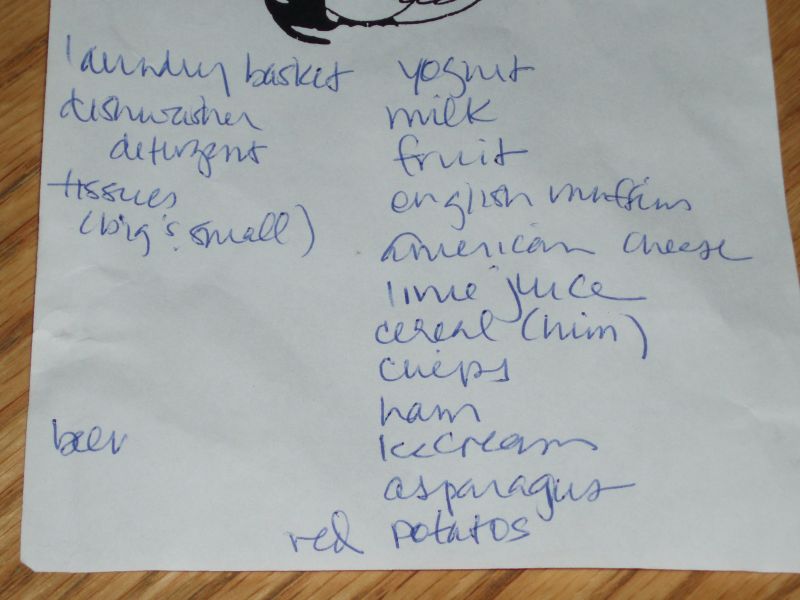 laundry basket
dishwasher
detergent
tissues
(big & small)
beer
yogurt
milk
fruit
english muffins
american cheese
lime juice
cereal (him)
chips
ham
ice cream
asparagus
red potatos